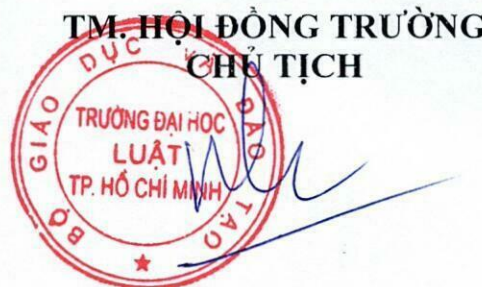 TM. HỘI ĐỒNG TRƯỜNG
CHỦ TỊCH
BỘ GIÁO DỤC VÀ ĐÀO TẠO
TRƯỜNG ĐẠI HỌC
LUẬT
TP. HỒ CHÍ MINH